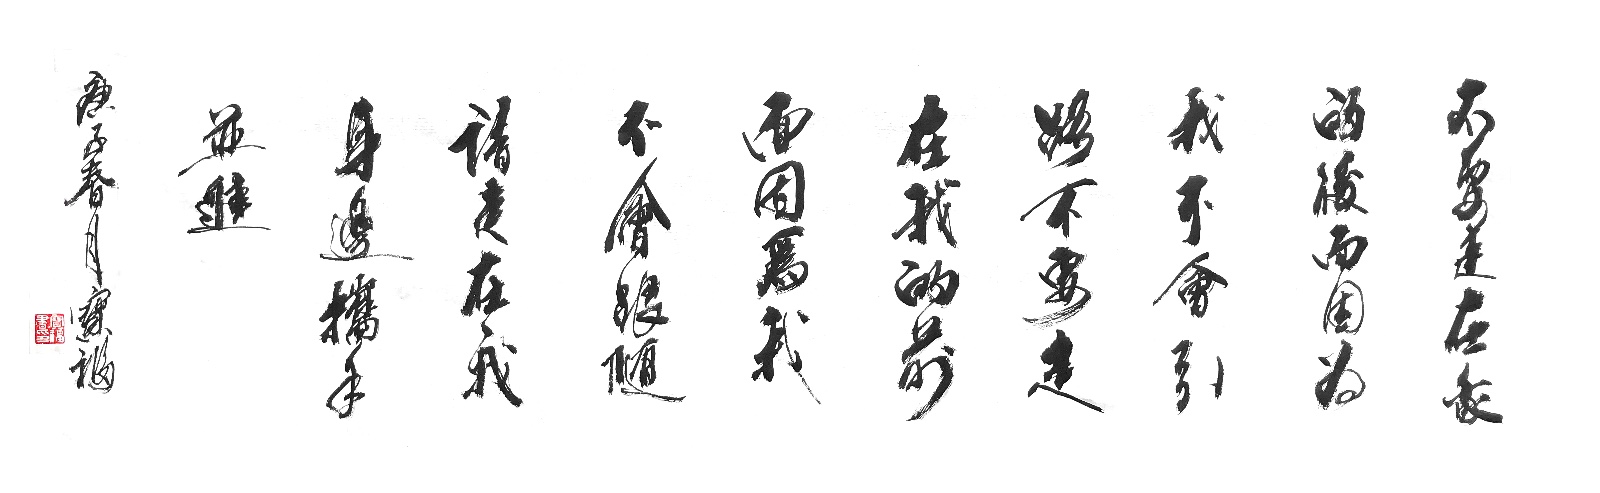 不要走在我
的後面因为
我不會引
路不要走
在我的前
面因爲我
不會跟隨
請走在我
身邊攜手
並進
庚子春月寶福